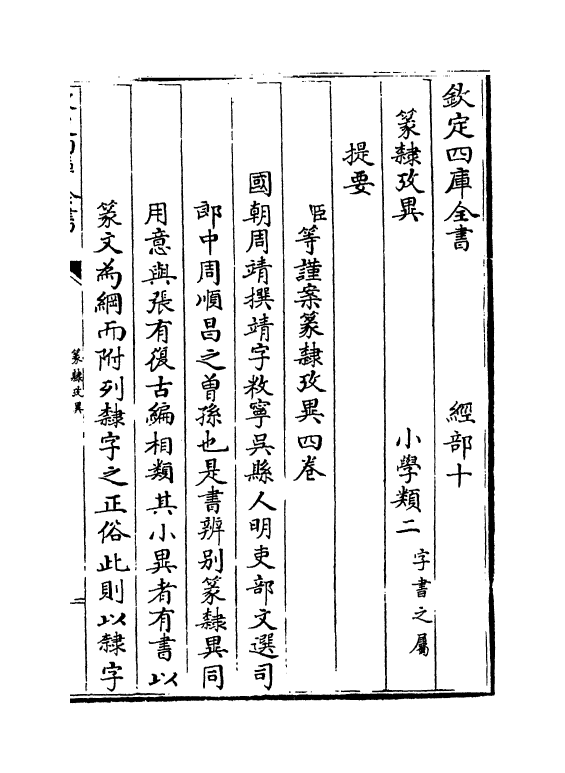 欽定四庫全書 經部十
篆隸攷異 小學類二 字書之屬
提要
臣等謹案篆隸攷異四卷
國朝周靖撰靖字敉寧吳縣人明吏部文選司
郎中周順昌之曽孫也是書辨别篆隸異同
用意與張有復古編相類其小異者有書以
篆文為綱而附列隸字之正俗此則以隸字
篆隸攷異